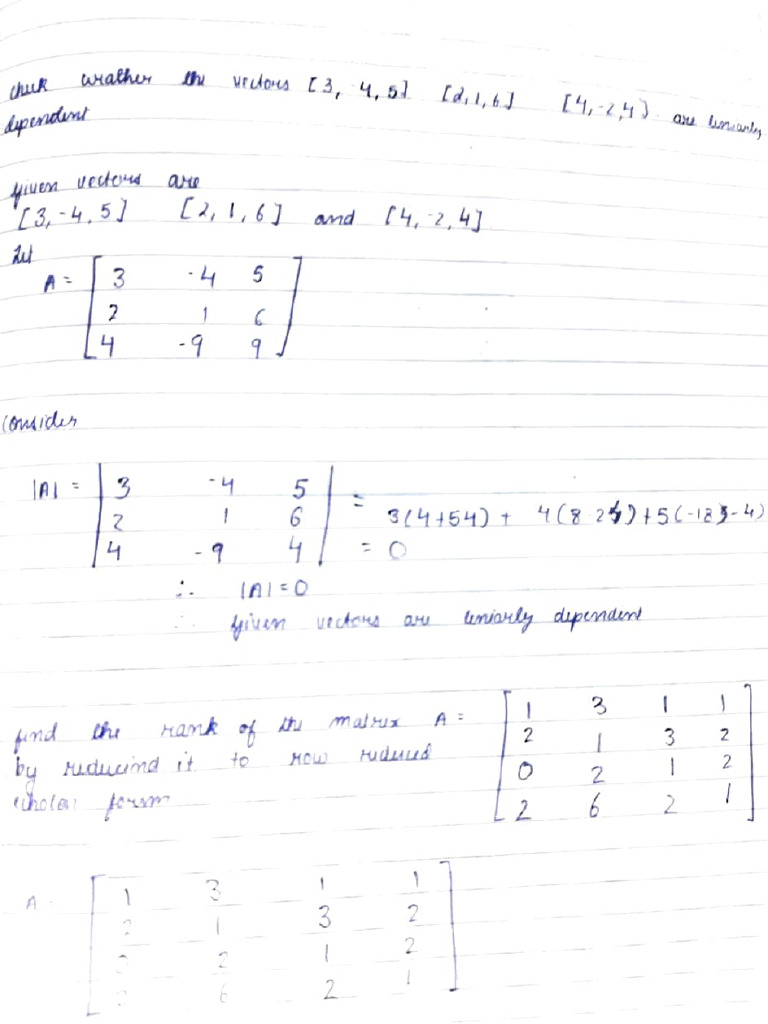 chek wrather the vectors [3, -4, 5] [2, 1, 6] [4, -2, 4] are leniarly
dependent
given vectors are
[3, -4, 5] [2, 1, 6] and [4, -2, 4]
Let
A = [ 3 -4 5
2 1 6
4 -9 9 ]
consider
|A| = | 3 -4 5 | = 3(4+54) + 4(8-24)+5(-18-4)
| 2 1 6 |
| 4 -9 4 | = 0
∴ |A| = 0
∴ given vectors are leniarly dependent
find the rank of the matrix A = [ 1 3 1 1
by reducind it to row reduced 2 1 3 2
form 0 2 1 2
2 6 2 1 ]
A [ 1 3 1 1
2 1 3 2
2 1 2
6 2 1 ]